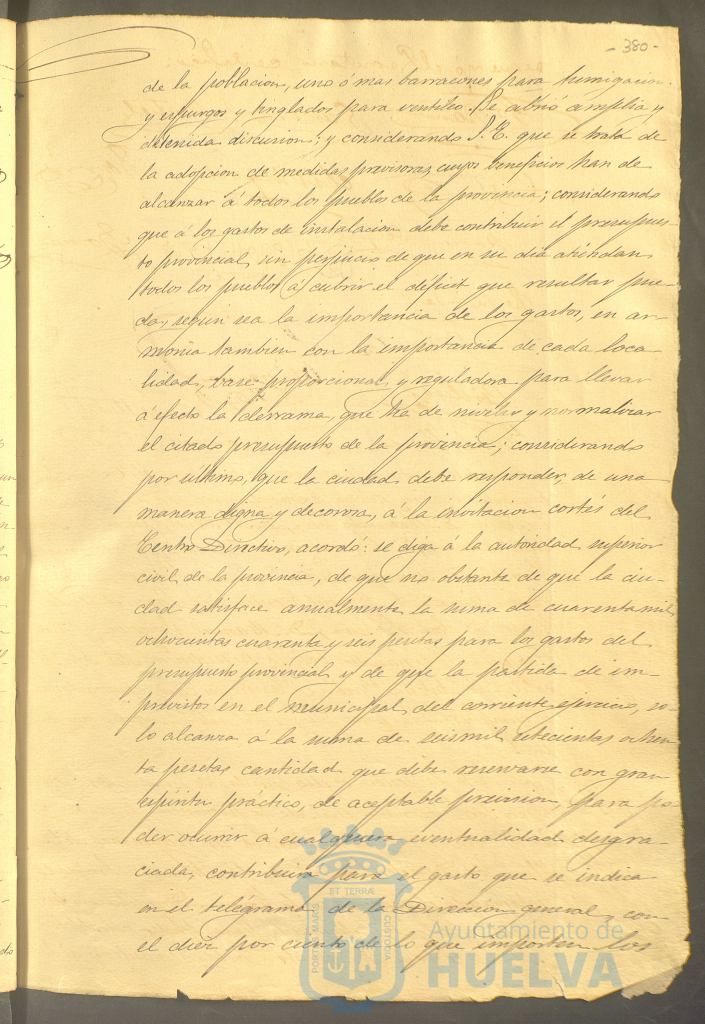 - 380 -
de la poblacion, uno ó mas barracones para fumigacion
y espurgos y tinglados para ventileo. Se abrió amplia y
detenida discusion; y considerando S. E. que se trata de
la adopcion de medidas previsoras, cuyos beneficios han de
alcanzar á todos los pueblos de la provincia; considerando
que á los gastos de instalacion debe contribuir el presupues-
to provincial, sin perjuicio de que en su dia atiendan
todos los pueblos á cubrir el déficit que resultar pue-
da, segun sea la importancia de los gastos, en ar-
monia tambien con la importancia de cada loca
lidad, base proporcional y reguladora para llevar
á efecto la derrama, que ha de nivelar y normalizar
el citado presupuesto de la provincia; considerando
por último, que la ciudad debe responder, de una
manera digna y decorosa, á la invitacion cortés del
Centro Directivo, acordó: se diga á la autoridad superior
civil de la provincia, de que no obstante de que la ciu-
dad satisface anualmente la suma de cuarenta mil
ochocientas cuarenta y seis pesetas para los gastos del
presupuesto provincial y de que la partida de im-
previstos en el municipal del corriente ejercicio, so-
lo alcanza á la suma de seis mil setecientas ochen
ta pesetas cantidad que debe reservarse con gran
espiritu práctico, de aceptable prevision, para po-
der ocurrir á cualquiera eventualidad desgra-
ciada, contribuira para el gasto que se indica
en el telégrama de la Direccion general, con
el diez por ciento de lo que importen los
PORTUS MARIS
ET TERRÆ
CUSTODIA
Ayuntamiento de
HUELVA